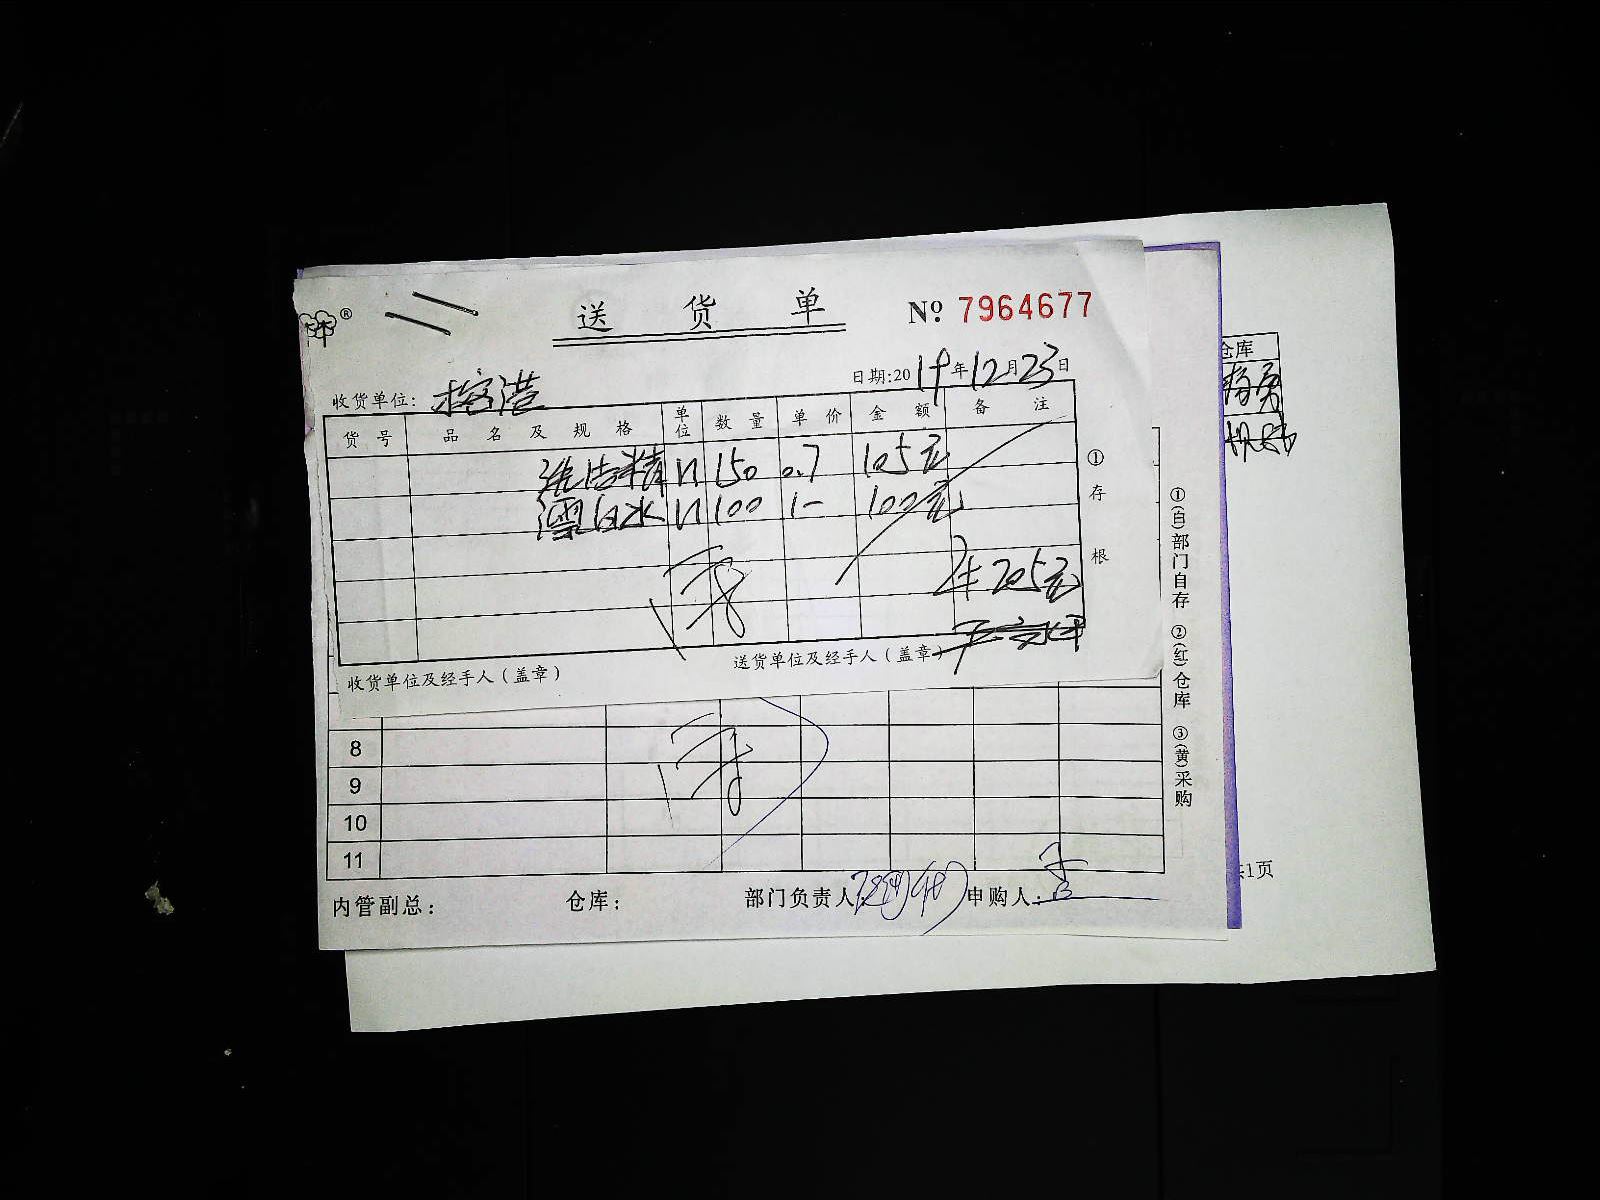 ®
送货单 № 7964677
收货单位: 榕港 日期:2019年12月23日
货号 品名及规格 单位 数量 单价 金额 备注
洗洁精 150 0.7 105元
雪白水 100 1- 100元
205元
收货单位及经手人(盖章) 送货单位及经手人(盖章)
①存根
8
9
10
11
内管副总: 仓库: 部门负责人: 申购人:
①(白)部门自存 ②(红)仓库 ③(黄)采购
仓库
共1页